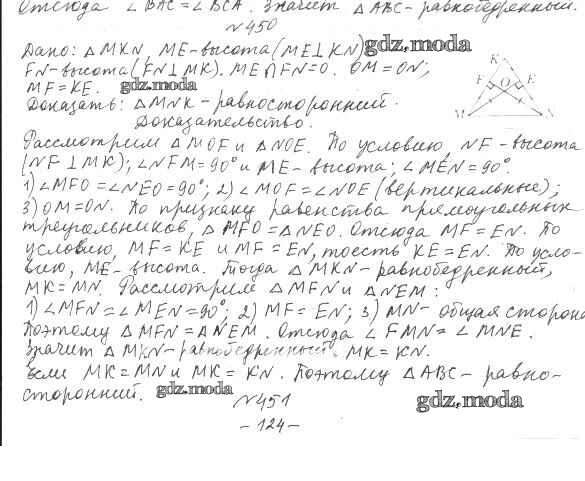 Отсюда ∠BAC = ∠BCA. Значит △ABC - равнобедренный.
№450
Дано: △MKN, ME-высота (ME⊥KN)
gdz.moda
FN-высота (FN⊥MK). ME∩FN=O. OM=ON;
MF=KE.
gdz.moda
Доказать: △MNK - равносторонний.
Доказательство.
K
F O E
M N
Рассмотрим △MOF и △NOE. По условию, NF - высота
(NF⊥MK); ∠NFM=90° и ME - высота; ∠MEN=90°.
1) ∠MFO=∠NEO=90°; 2) ∠MOF=∠NOE (вертикальные);
3) OM=ON. По признаку равенства прямоугольных
треугольников, △MFO=△NEO. Отсюда MF=EN. По
условию, MF=KE и MF=EN, тоесть KE=EN. По усло-
вию, ME- высота. Тогда △MKN-равнобедренный,
MK=MN. Рассмотрим △MFN и △NEM:
1) ∠MFN=∠MEN=90°; 2) MF=EN; 3) MN- общая сторона
Поэтому △MFN=△NEM. Отсюда ∠FMN=∠MNE.
Значит △MKN-равнобедренный. MK=KN.
Если MK=MN и MK=KN. Поэтому △ABC - равно-
сторонний.
gdz.moda
№451
gdz.moda
-124-